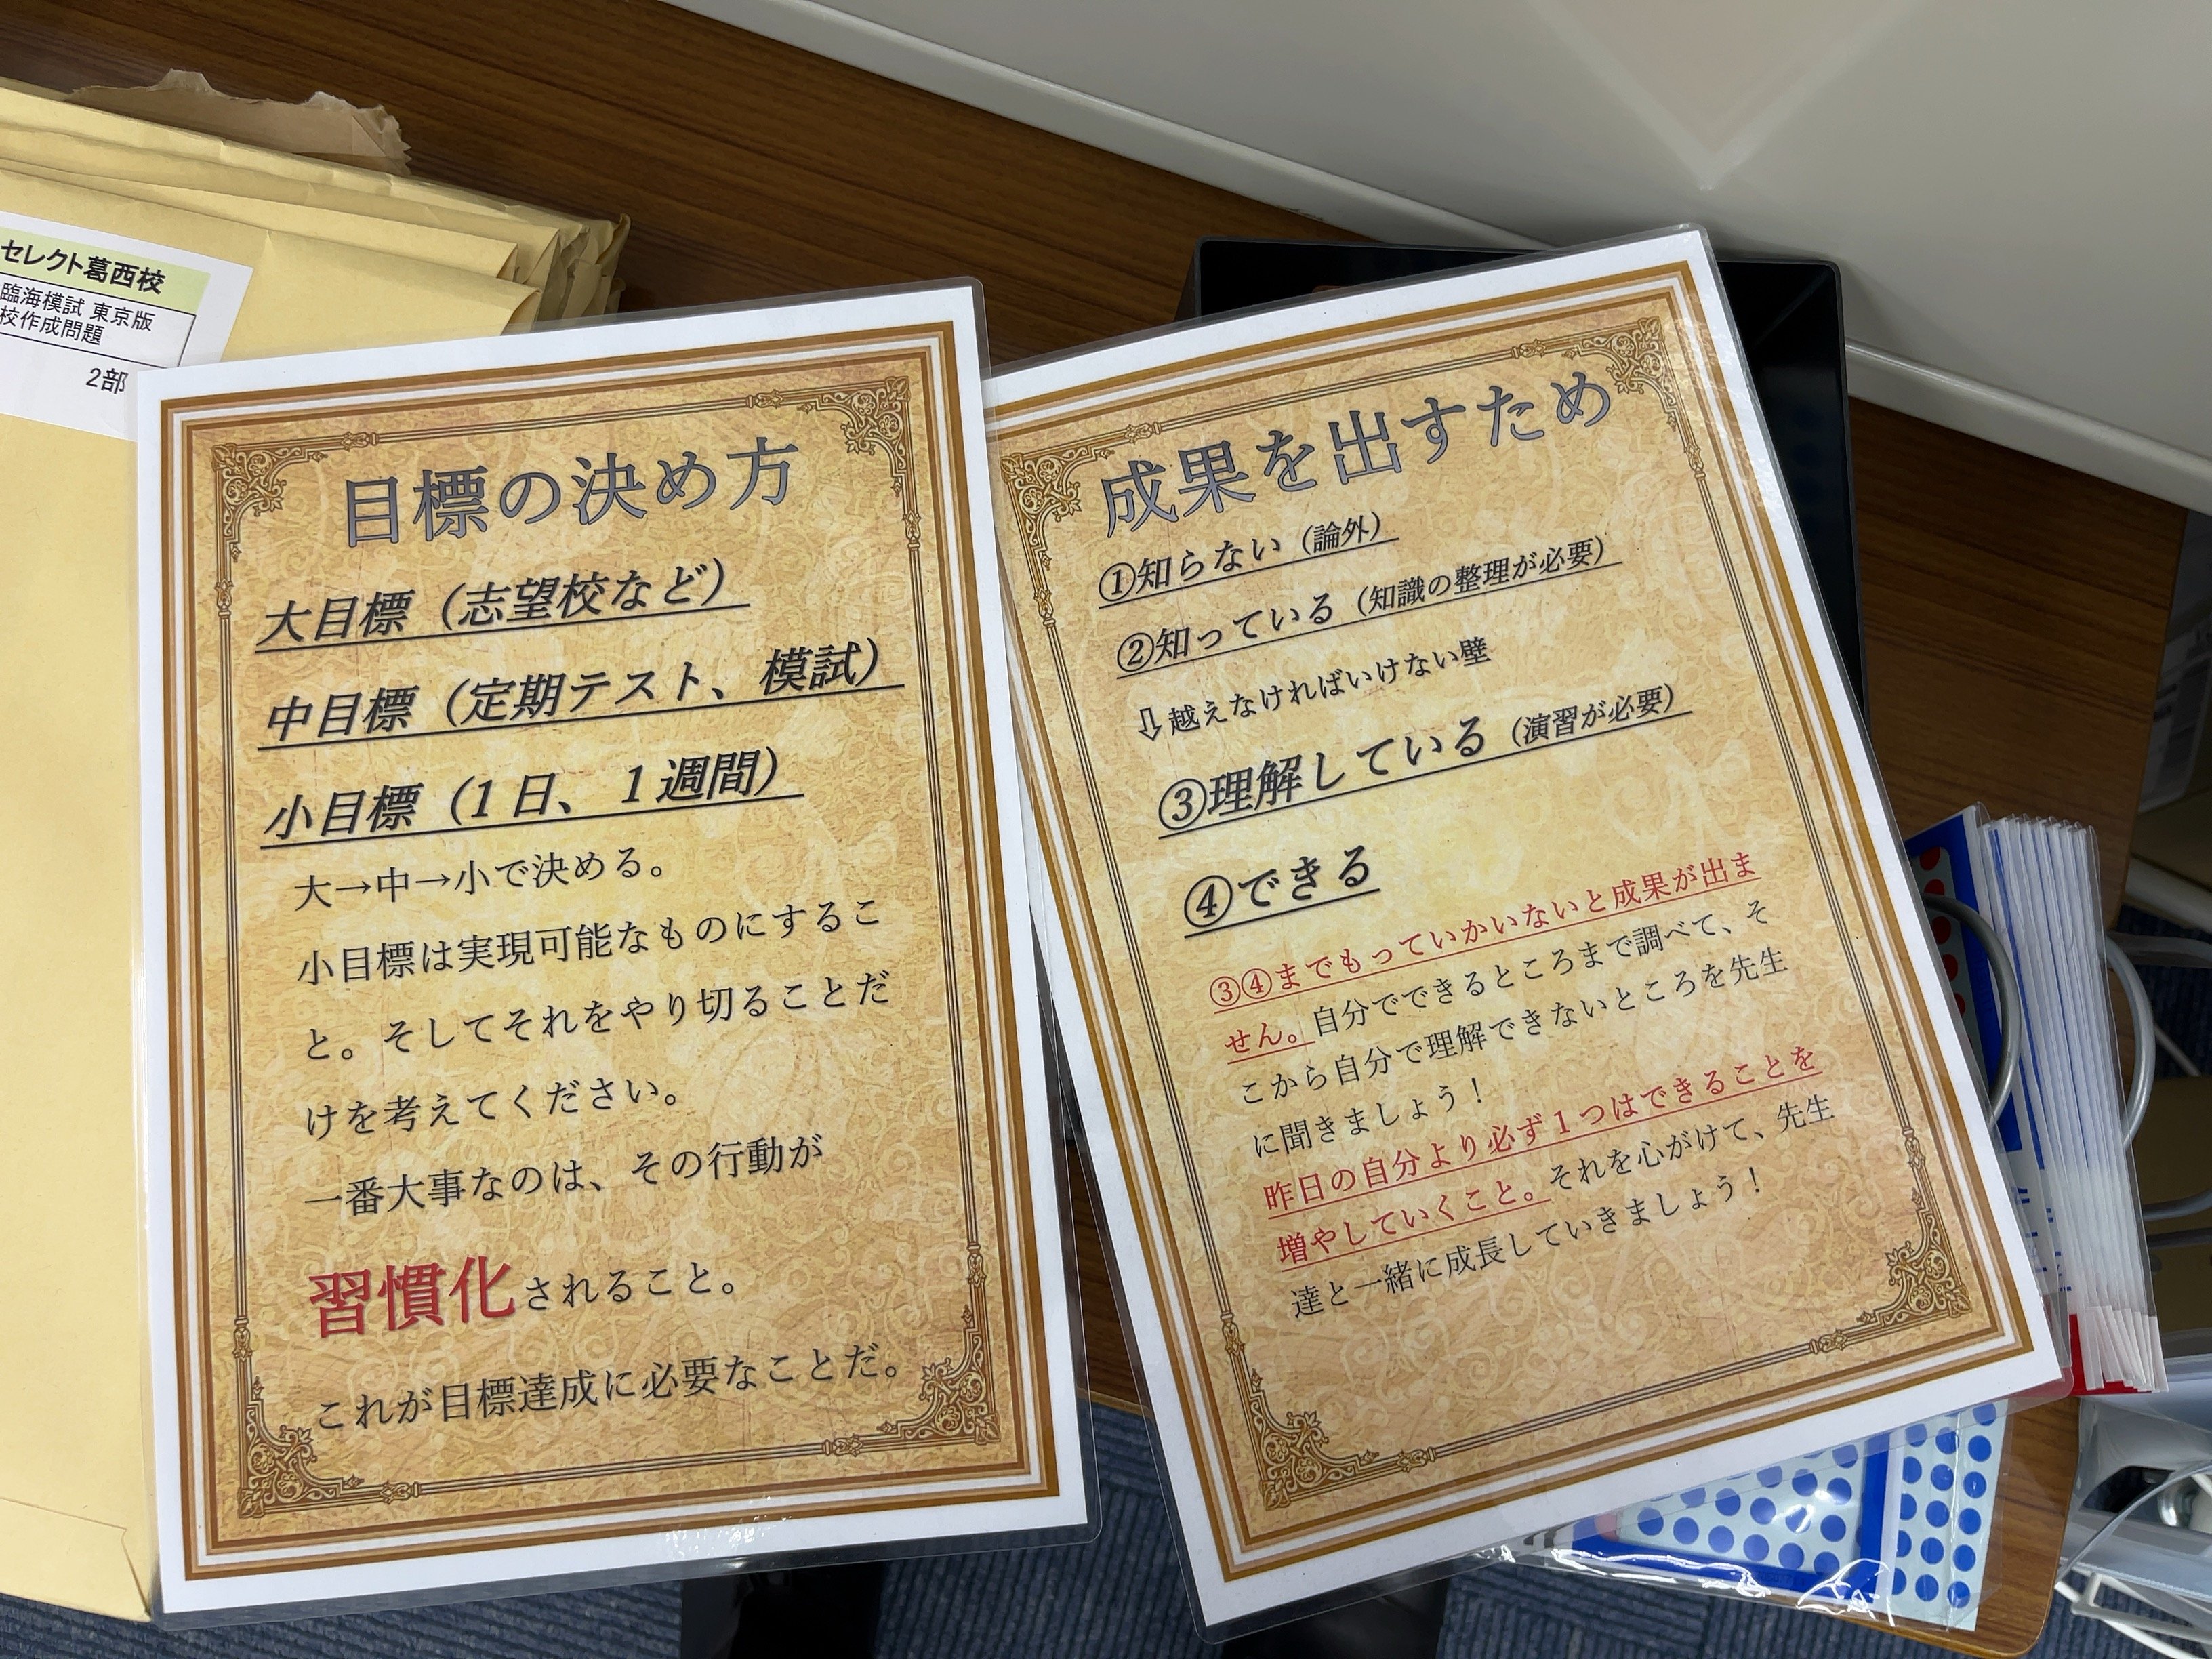 セレクト葛西校
臨海模試 東京版
校作成問題
2部
目標の決め方
大目標（志望校など）
中目標（定期テスト、模試）
小目標（1日、1週間）
大→中→小で決める。
小目標は実現可能なものにするこ
と。そしてそれをやり切ることだ
けを考えてください。
一番大事なのは、その行動が
習慣化されること。
これが目標達成に必要なことだ。
成果を出すため
①知らない（論外）
②知っている（知識の整理が必要）
⇩越えなければいけない壁
③理解している（演習が必要）
④できる
③④までもっていかいないと成果が出ま
せん。自分でできるところまで調べて、そ
こから自分で理解できないところを先生
に聞きましょう！
昨日の自分より必ず1つはできることを
増やしていくこと。それを心がけて、先生
達と一緒に成長していきましょう！